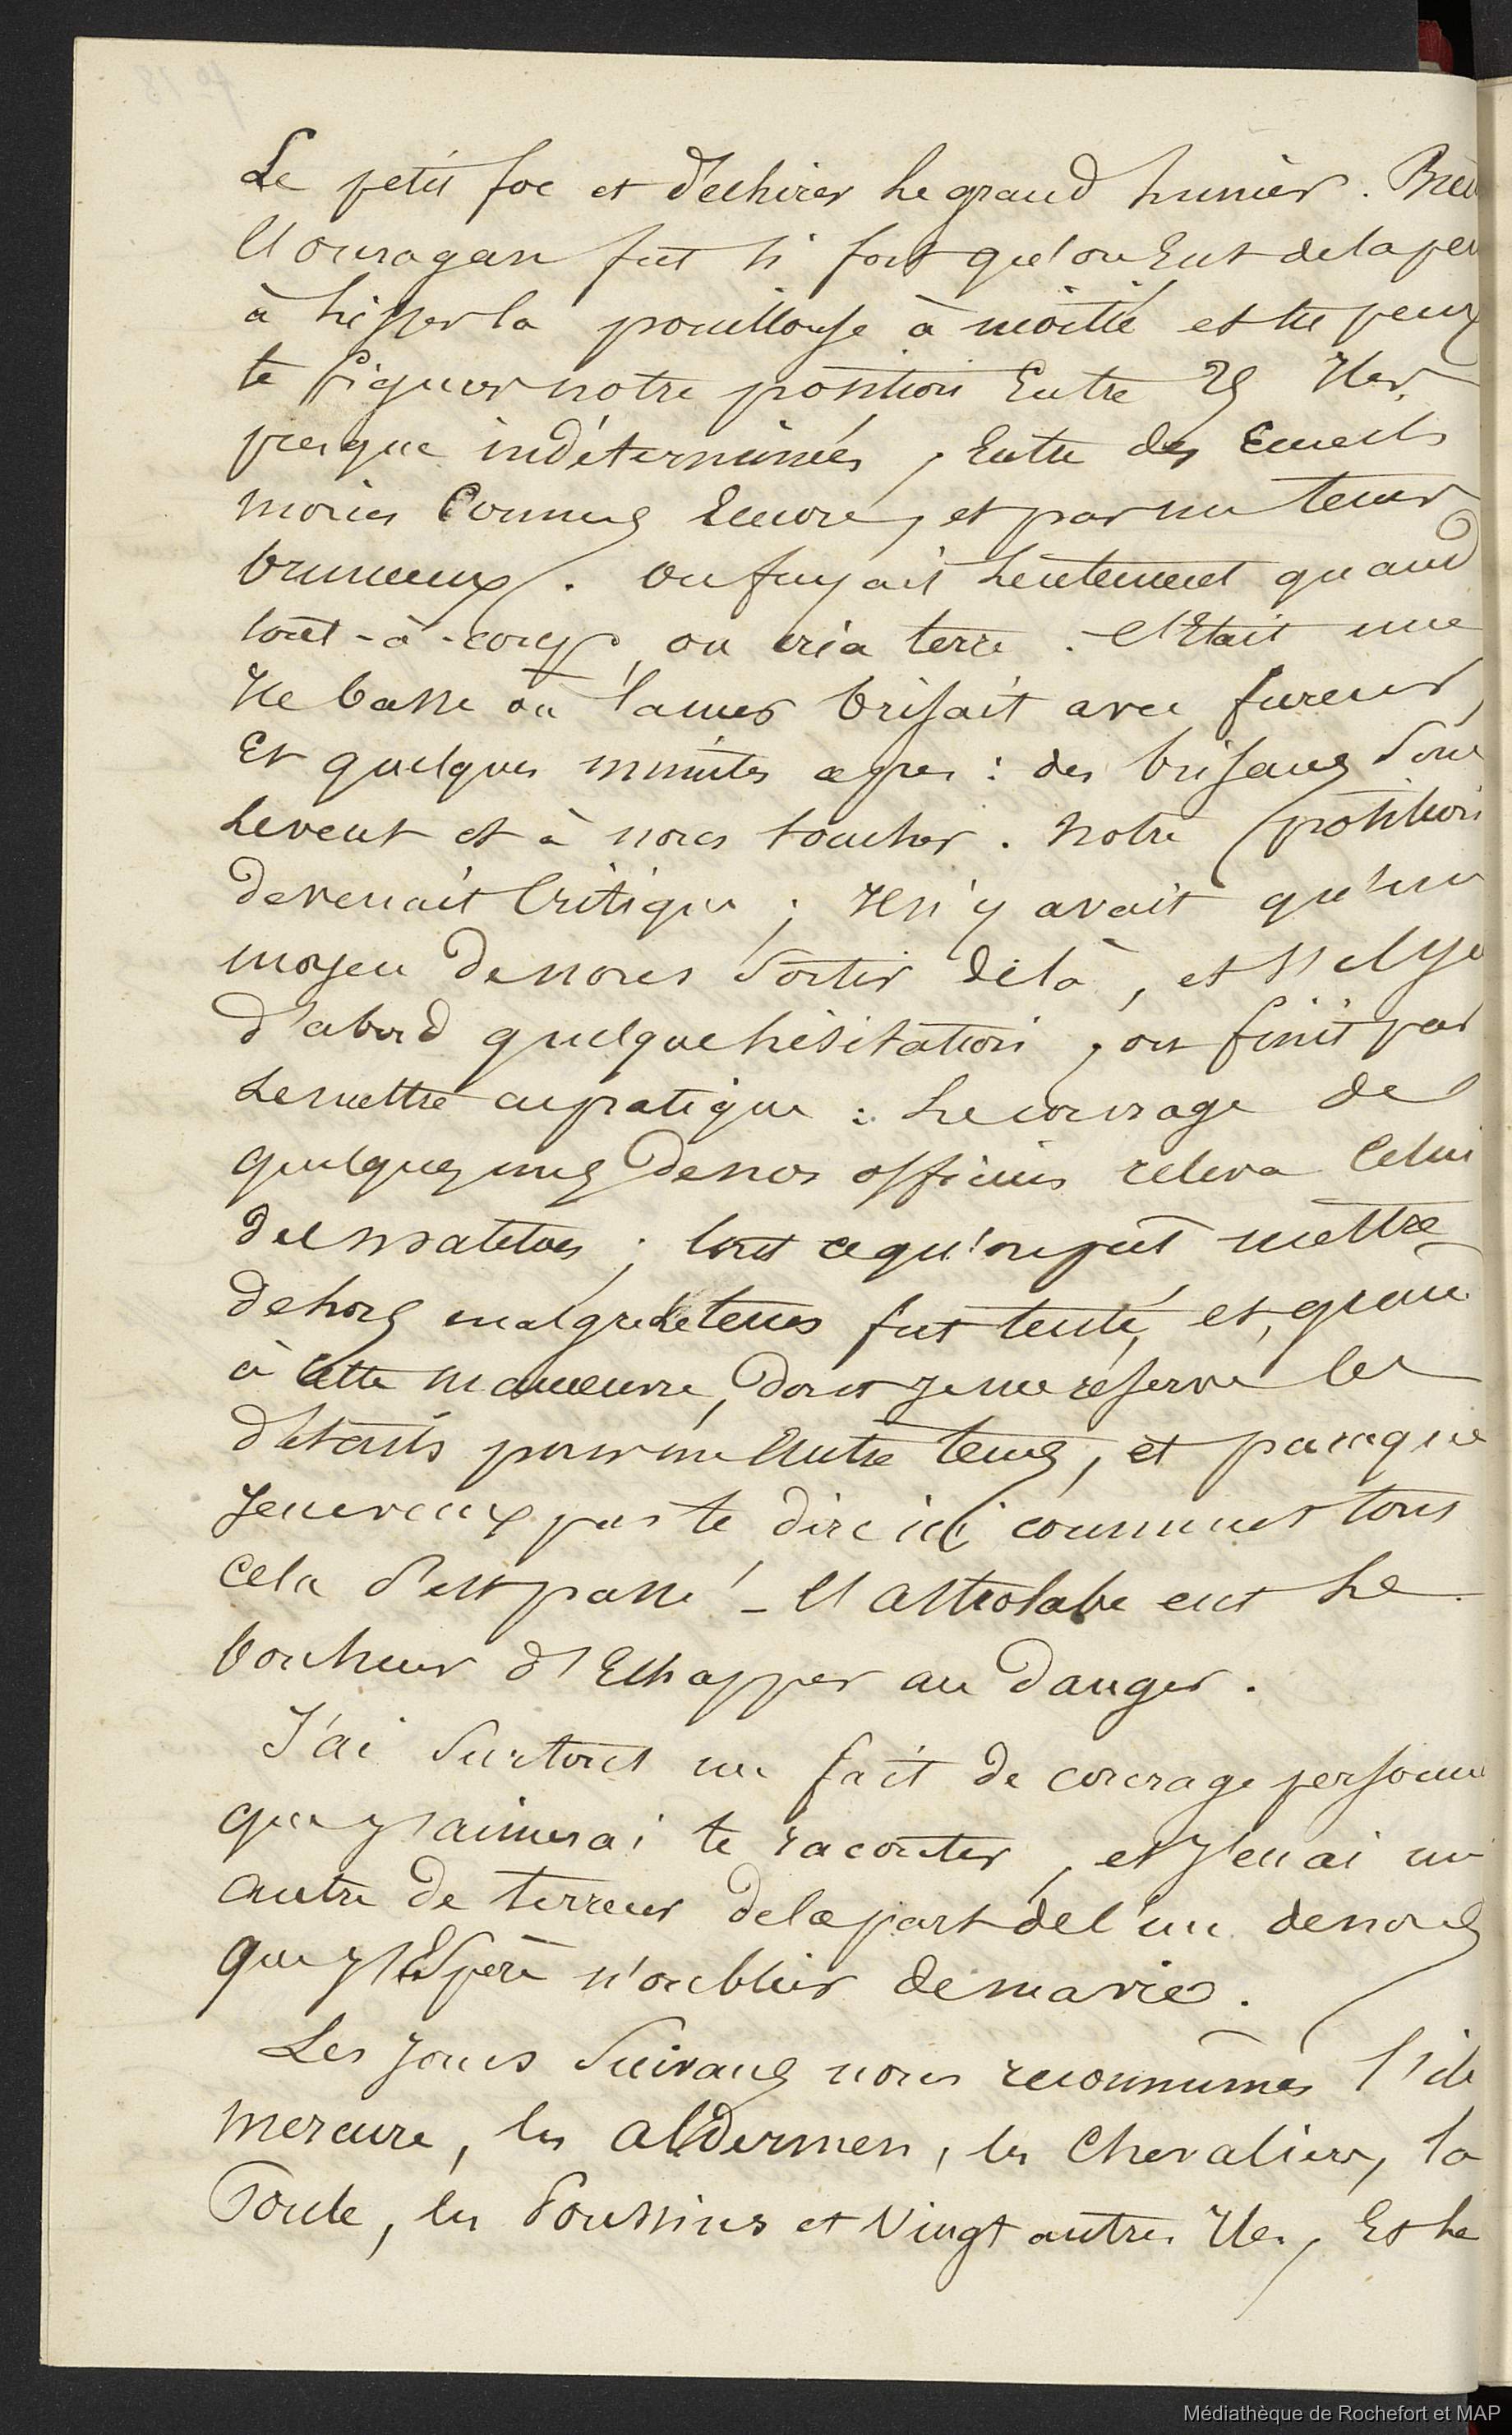 Le petit foc et déchirer le grand hunier. Bref
l'ouragan fut si fort qu'on eut de la pei
à hisser la pouillouse à moitié et tu peux
te figurer notre position entre 25 Iles
presque indéterminées, entre des écueils
moins connus encore, et par un tems
brumeux. on fuyait lentement quand
tout-à-coup, on cria terre. c'était une
Ile basse où la mer brisait avec fureur,
Et quelques minutes après : des brisans Sous
le vent et à nous toucher. Notre position
devenait Critique ; Il n'y avait qu'un
moyen de nous Sortir de là, et s'il y eu
d'abord quelque hésitation, on finit par
le mettre en pratique : le courage de
quelques uns de nos officiers releva Celui
des matelots ; tout ce qu'on put mettre
dehors malgré le tems fut tenté, et, grâce
à Cette manœuvre, dont je me réserve les
détails pour un Autre tems, et parceque
Je ne veux pas te dire ici comment tout
cela s'est passé - l'astrolabe eut le
bonheur d'échapper au danger.
J'ai Surtout un fait de courage personne
que j'aimerai te raconter, et j'en ai un
autre de terreur de la part de l'un de nous
que j'Espère n'oublier de ma vie.
Les jours Suivans nous reconnumes l'ile
mercure, les aldermen, les Chevaliers, la
Poule, les Poussins et Vingt autres Iles, Et le
Médiathèque de Rochefort et MAP